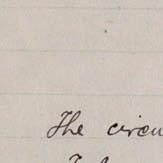 The circu